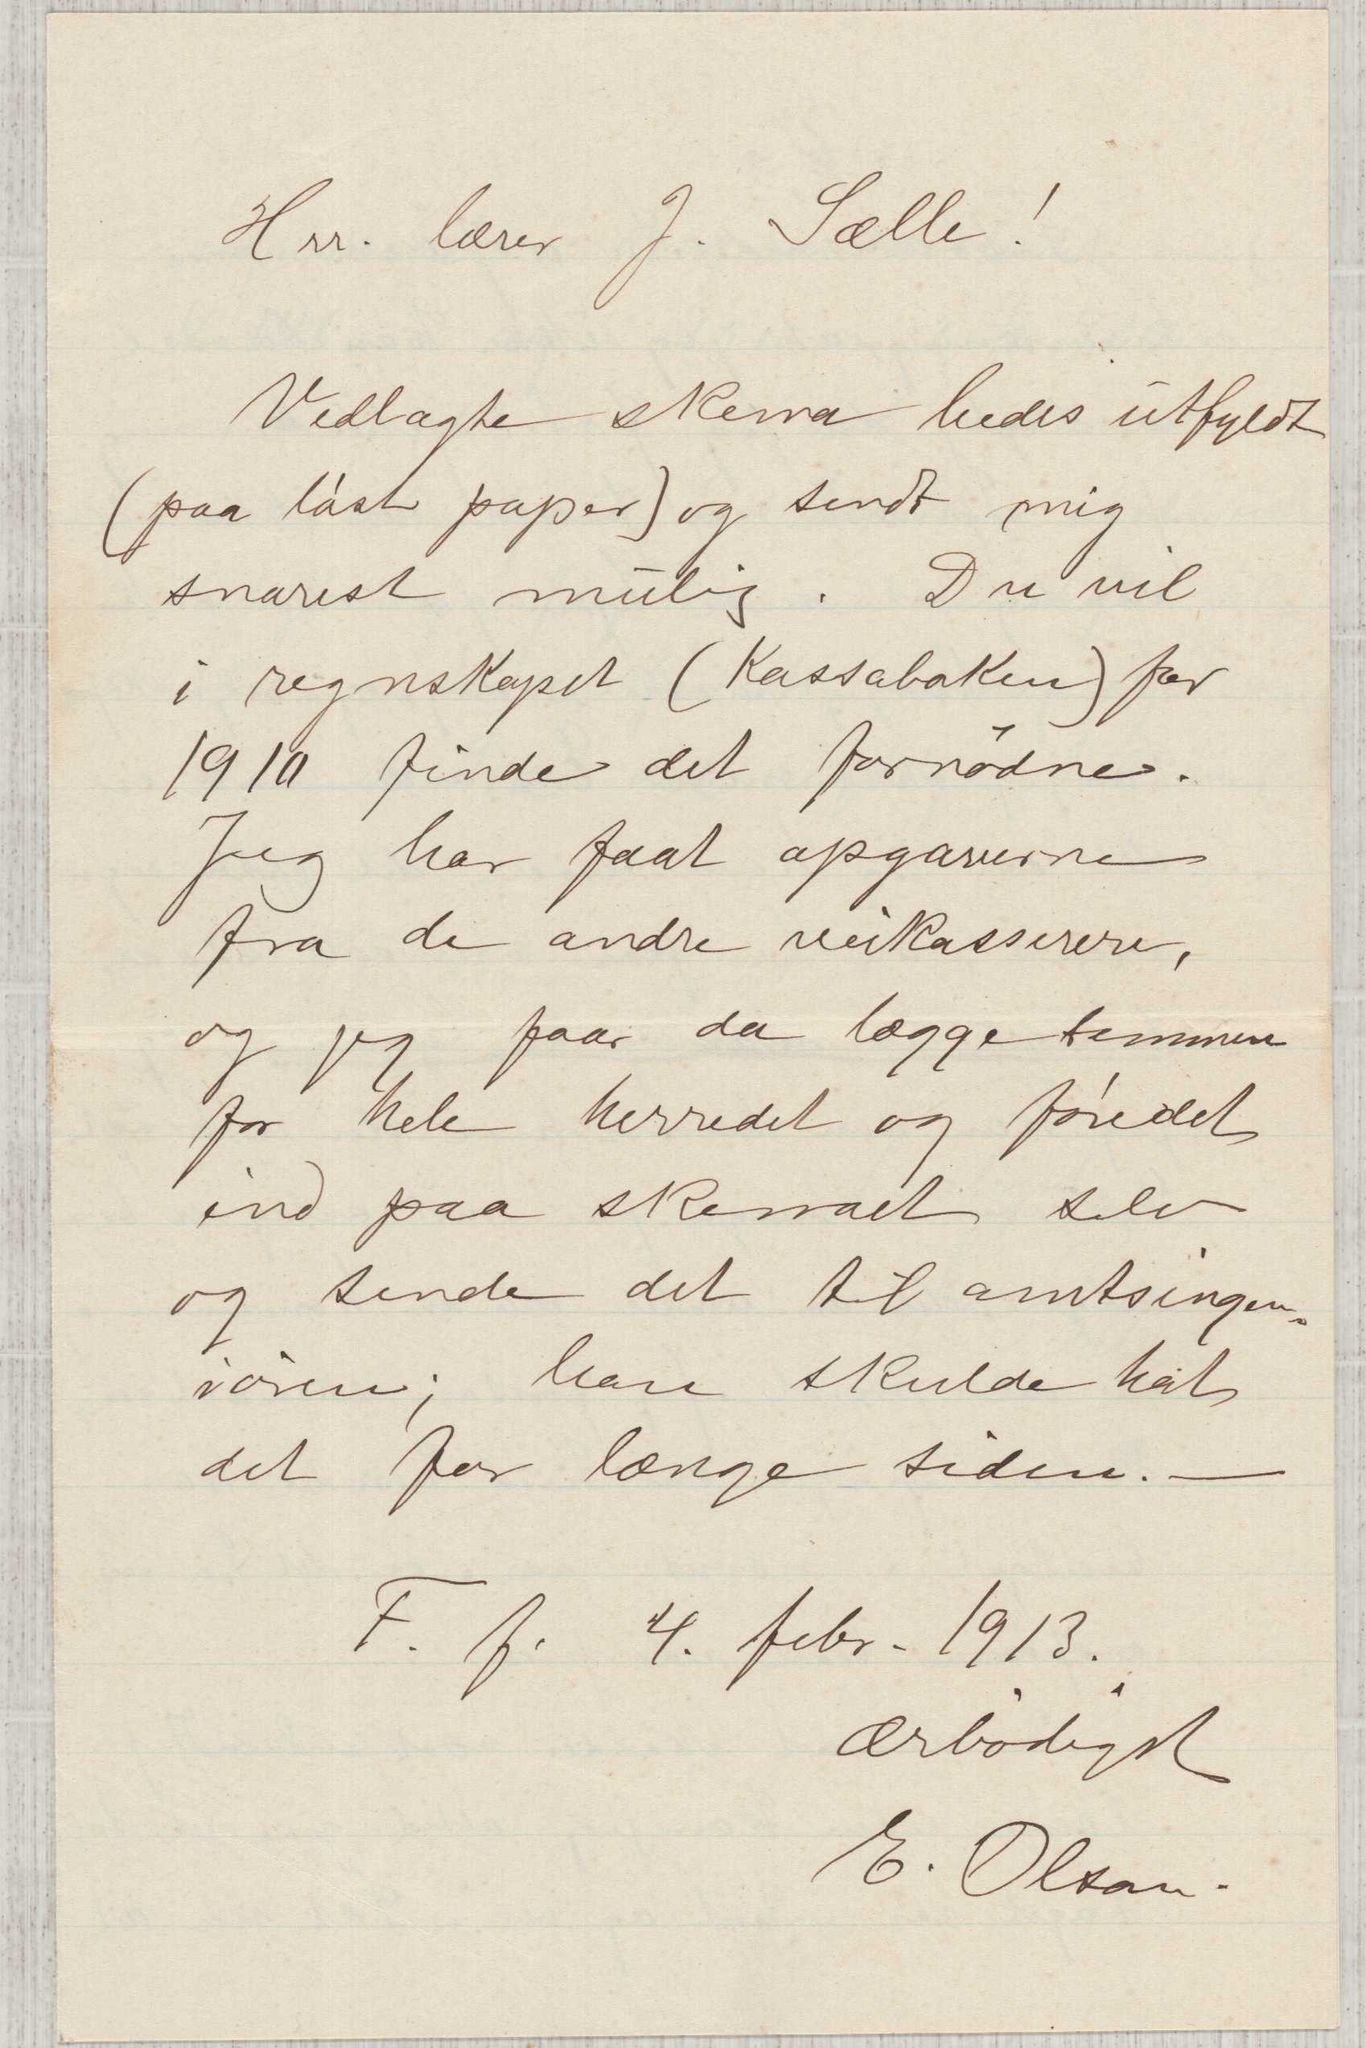 Hrr. lærer J. Sælle!
Vedlagte skema bedes utfyldt
(paa løst papir) og sendt mig
snarest mulig. Du vil
i regnskapet (Kassaboken) for
1910 finde det fornødne.
Jeg har faat opgaverne
fra de andre veikasserere,
og jeg faar da lægge sammen
for hele herredet og føre det
ind paa skemaet selv
og sende det til amtsingen-
iøren; han skulde hat
det for længe siden. —
F. f. 4. febr. 1913.
ærbødigst
E. Olson.